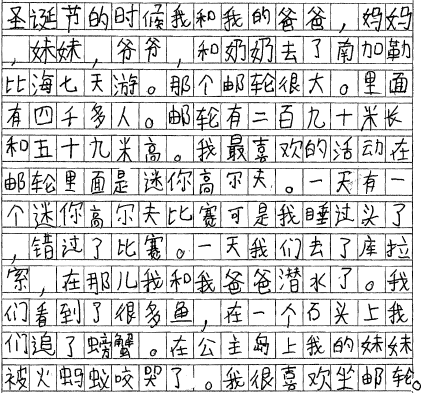 圣诞节的时候我和我的爸爸，妈妈
，妹妹，爷爷，和奶奶去了南加勒
比海七天游。那个邮轮很大。里面
有四千多人。邮轮有二百九十米长
和五十九米高。我最喜欢的活动在
邮轮里面是迷你高尔夫。一天有一
个迷你高尔夫比赛可是我睡过头了
，错过了比赛。一天我们去了库拉
索，在那儿我和我爸爸潜水了。我
们看到了很多鱼，在一个石头上我
们追了螃蟹。在公主岛上我的妹妹
被火蚂蚁咬哭了。我很喜欢坐邮轮。